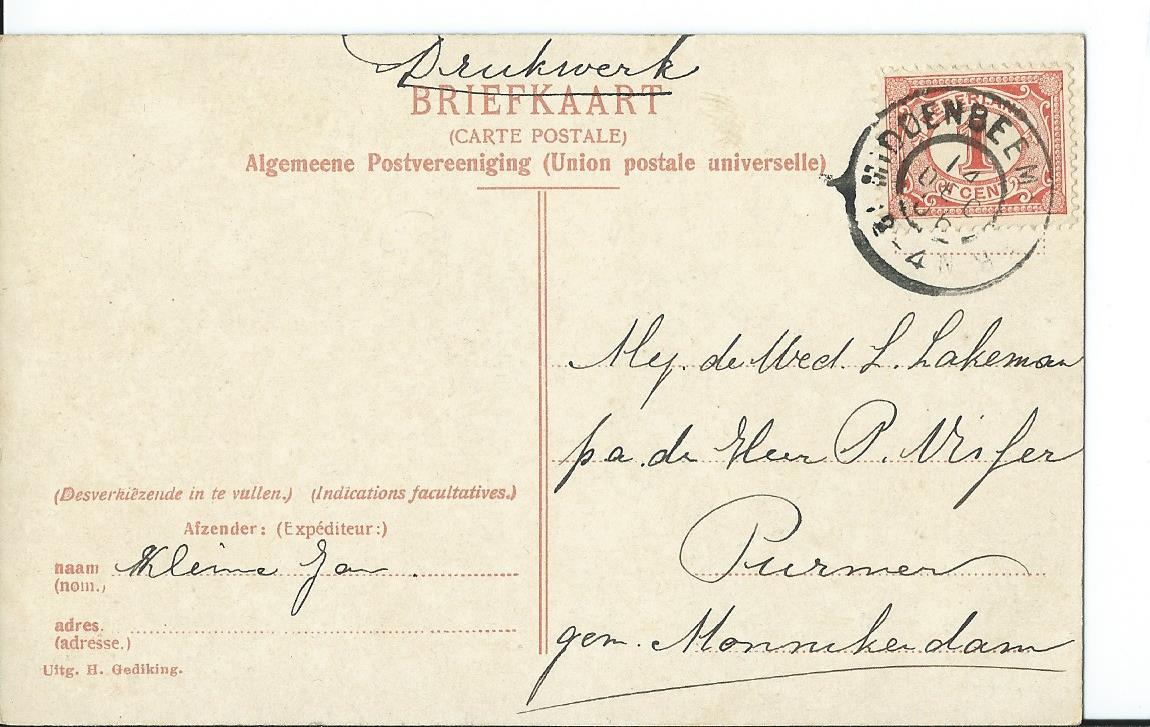 Drukwerk
BRIEFKAART
(CARTE POSTALE)
Algemeene Postvereeniging (Union postale universelle)
NEDERLAND
1
CENT
MIDDENBEEMS
Mej. de Wed. L. Lakeman
pa. de Heer P. Visser
Purmer
gem. Monnikendam
(Desverkiëzende in te vullen.) (Indications facultatives.)
Afzender: (Expéditeur:)
naam Kleine Jan.
(nom.)
adres.
(adresse.)
Uitg. H. Gediking.